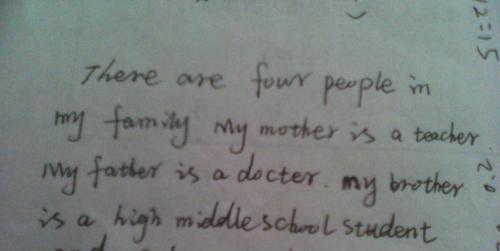 There are four people in
my family. My mother is a teacher
My father is a docter. my brother
is a high middle school student
12=15